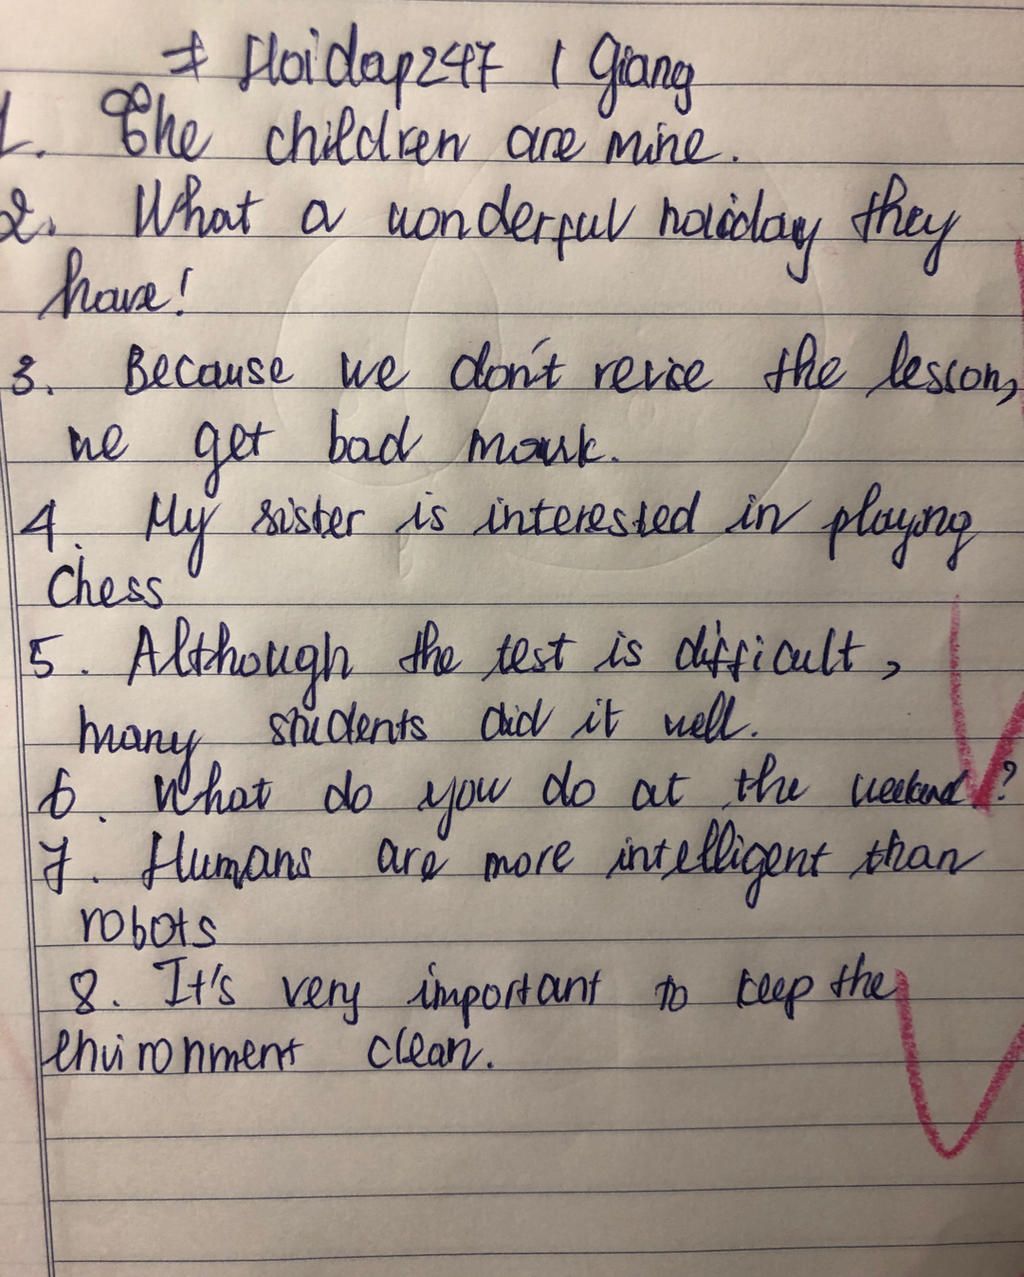 ≠ Hoidap247 / Giang
1. The children are mine.
2. What a wonderful holiday they
have!
3. Because we don't revise the lesson,
we get bad mark.
4. My sister is interested in playing
chess
5. Although the test is difficult,
many students did it well.
6. What do you do at the weekend?
7. Humans are more intelligent than
robots
8. It's very important to keep the
environment clean.